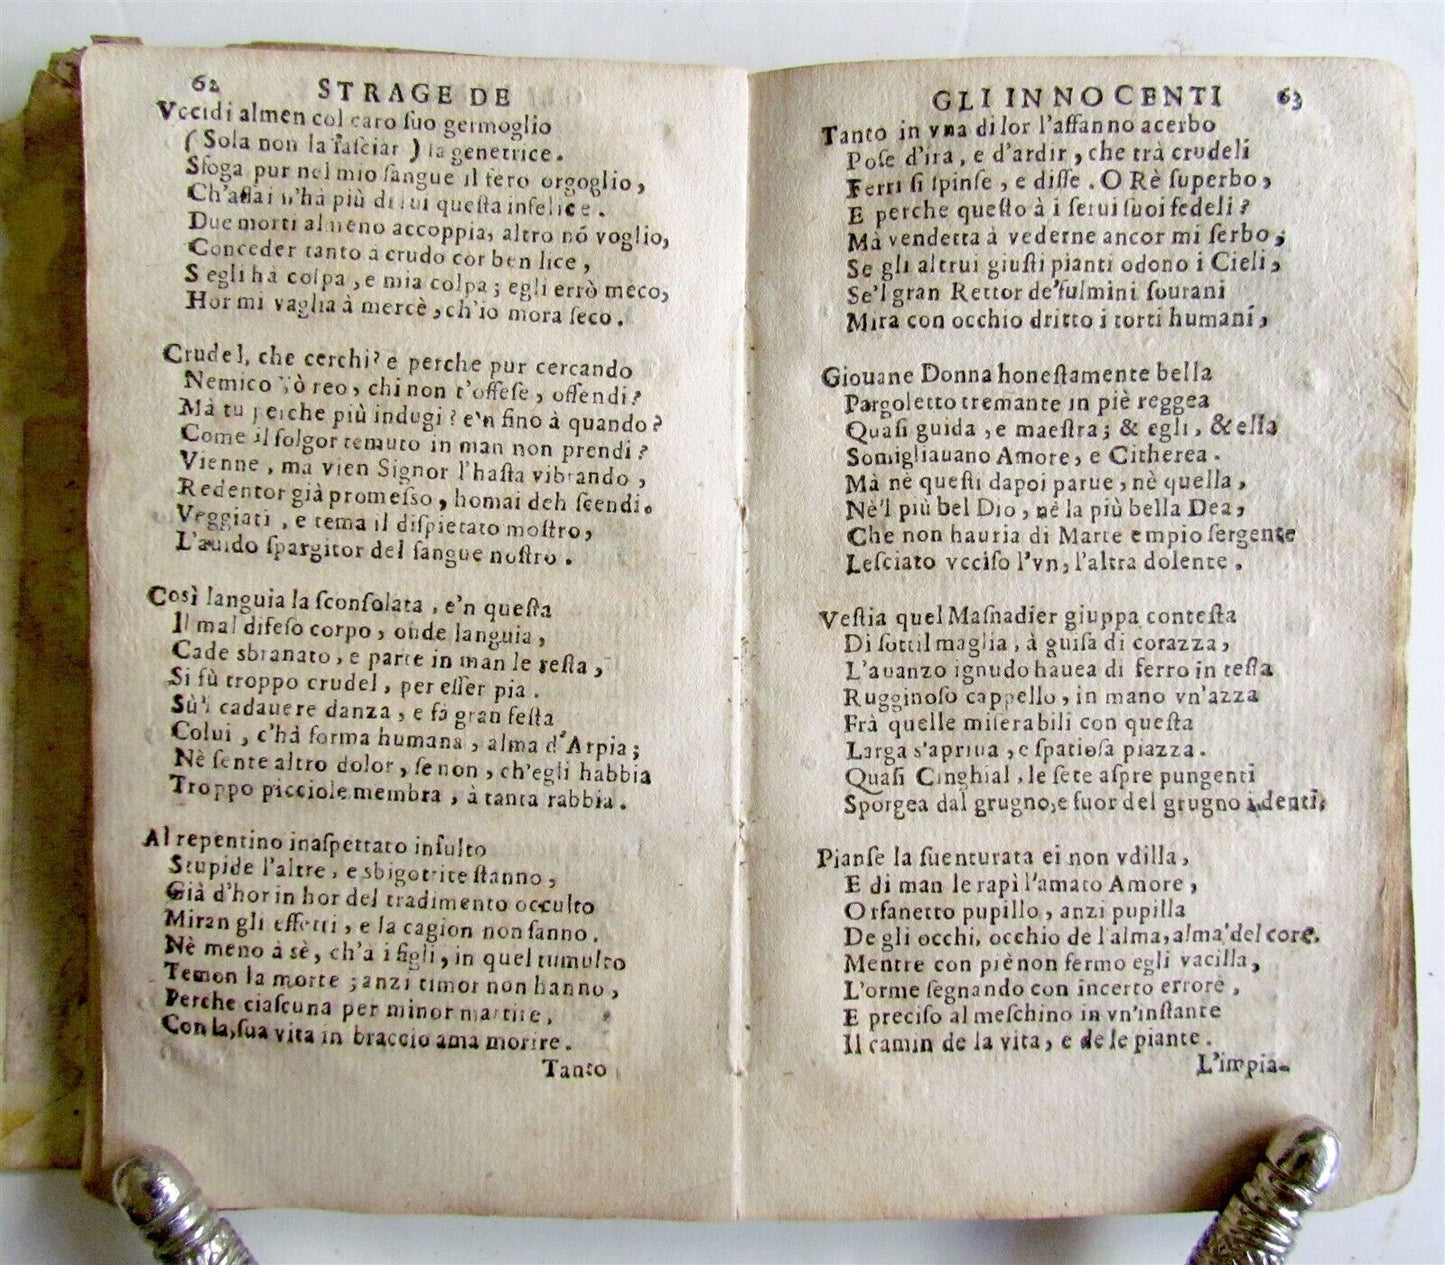 62 STRAGE DE
Vccidi almen col caro ſuo germoglio
( Sola non la faſciar ) la genetrice.
Sfoga pur nel mio ſangue il fero orgoglio,
Ch'aſſai n'hà più di lui queſta infelice.
Due morti almeno accoppia, altro nõ voglio,
Conceder tanto à crudo cor ben lice,
S egli hà colpa, e mia colpa; egli errò meco,
Hor mi vaglia à mercè, ch'io mora ſeco.
Crudel, che cerchi? e perche pur cercando
Nemico, ò reo, chi non t'offeſe, offendi?
Mà tu perche più indugi? e'n fino à quando?
Come il folgor temuto in man non prendi?
Vienne, ma vien Signor l'haſta vibrando,
Redentor già promeſſo, homai deh ſcendi.
Veggiati, e tema il diſpietato moſtro,
L'auido ſpargitor del ſangue noſtro.
Così languia la ſconſolata, e'n queſta
Il mal difeſo corpo, onde languia,
Cade sbranato, e parte in man le reſta,
Si fù troppo crudel, per eſſer pia.
Sù'l cadauere danza, e fà gran feſta
Colui, c'hà forma humana, alma d'Arpia;
Nè ſente altro dolor, ſe non, ch'egli habbia
Troppo picciole membra, à tanta rabbia.
Al repentino inaſpettato inſulto
Stupide l'altre, e sbigottite ſtanno,
Già d'hor in hor del tradimento occulto
Miran gli effetti, e la cagion non ſanno.
Nè meno à sè, ch'à i figli, in quel tumulto
Temon la morte; anzi timor non hanno,
Perche ciaſcuna per minor martire,
Con la, ſua vita in braccio ama morire.
Tanto
GLI INNOCENTI 63
Tanto in vna di lor l'affanno acerbo
Poſe d'ira, e d'ardir, che trà crudeli
Ferri ſi ſpinſe, e diſſe. O Rè ſuperbo,
E perche queſto à i ſerui ſuoi fedeli?
Mà vendetta à vederne ancor mi ſerbo;
Se gli altrui giuſti pianti odono i Cieli,
Se'l gran Rettor de'fulmini ſourani
Mira con occhio dritto i torti humani,
Giouane Donna honeſtamente bella
Pargoletto tremante in piè reggea
Quaſi guida, e maeſtra; & egli, & ella
Somigliauano Amore, e Citherea.
Mà nè queſti dapoi parue, nè quella,
Nè'l più bel Dio, nè la più bella Dea,
Che non hauria di Marte empio ſergente
Leſciato vcciſo l'vn, l'altra dolente.
Veſtia quel Maſnadier giuppa conteſta
Di ſottil maglia, à guiſa di corazza,
L'auanzo ignudo hauea di ferro in teſta
Rugginoſo cappello, in mano vn'azza
Frà quelle miſerabili con queſta
Larga s'apriua, e ſpatioſa piazza.
Quaſi Cinghial, le ſete aſpre pungenti
Sporgea dal grugno, e fuor del grugno i denti.
Pianſe la ſuenturata ei non vdilla,
E di man le rapì l'amato Amore,
Orfanetto pupillo, anzi pupilla
De gli occhi, occhio de l'alma, alma del core.
Mentre con piè non fermo egli vacilla,
L'orme ſegnando con incerto errore,
E preciſo al meſchino in vn'inſtante
Il camin de la vita, e de le piante.
L'impia-